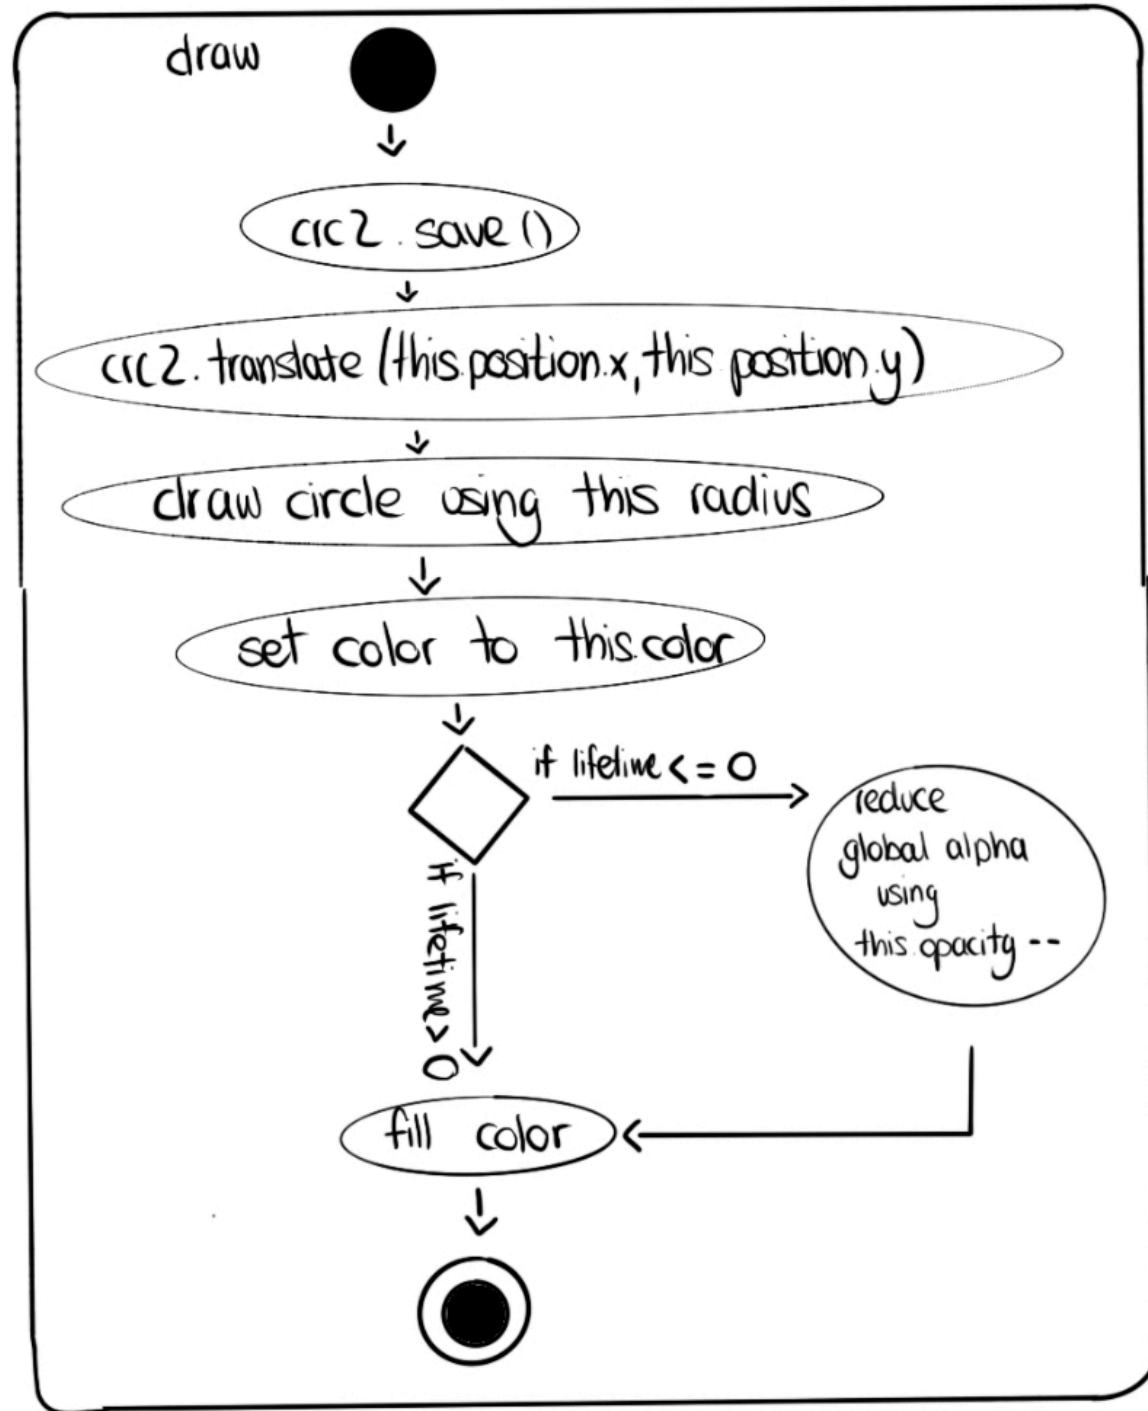 draw
crc2.save()
crc2.translate(this.position.x, this.position.y)
draw circle using this radius
set color to this.color
if lifetime <= 0
reduce
global alpha
using
this.opacity --
if lifetime > 0
fill color